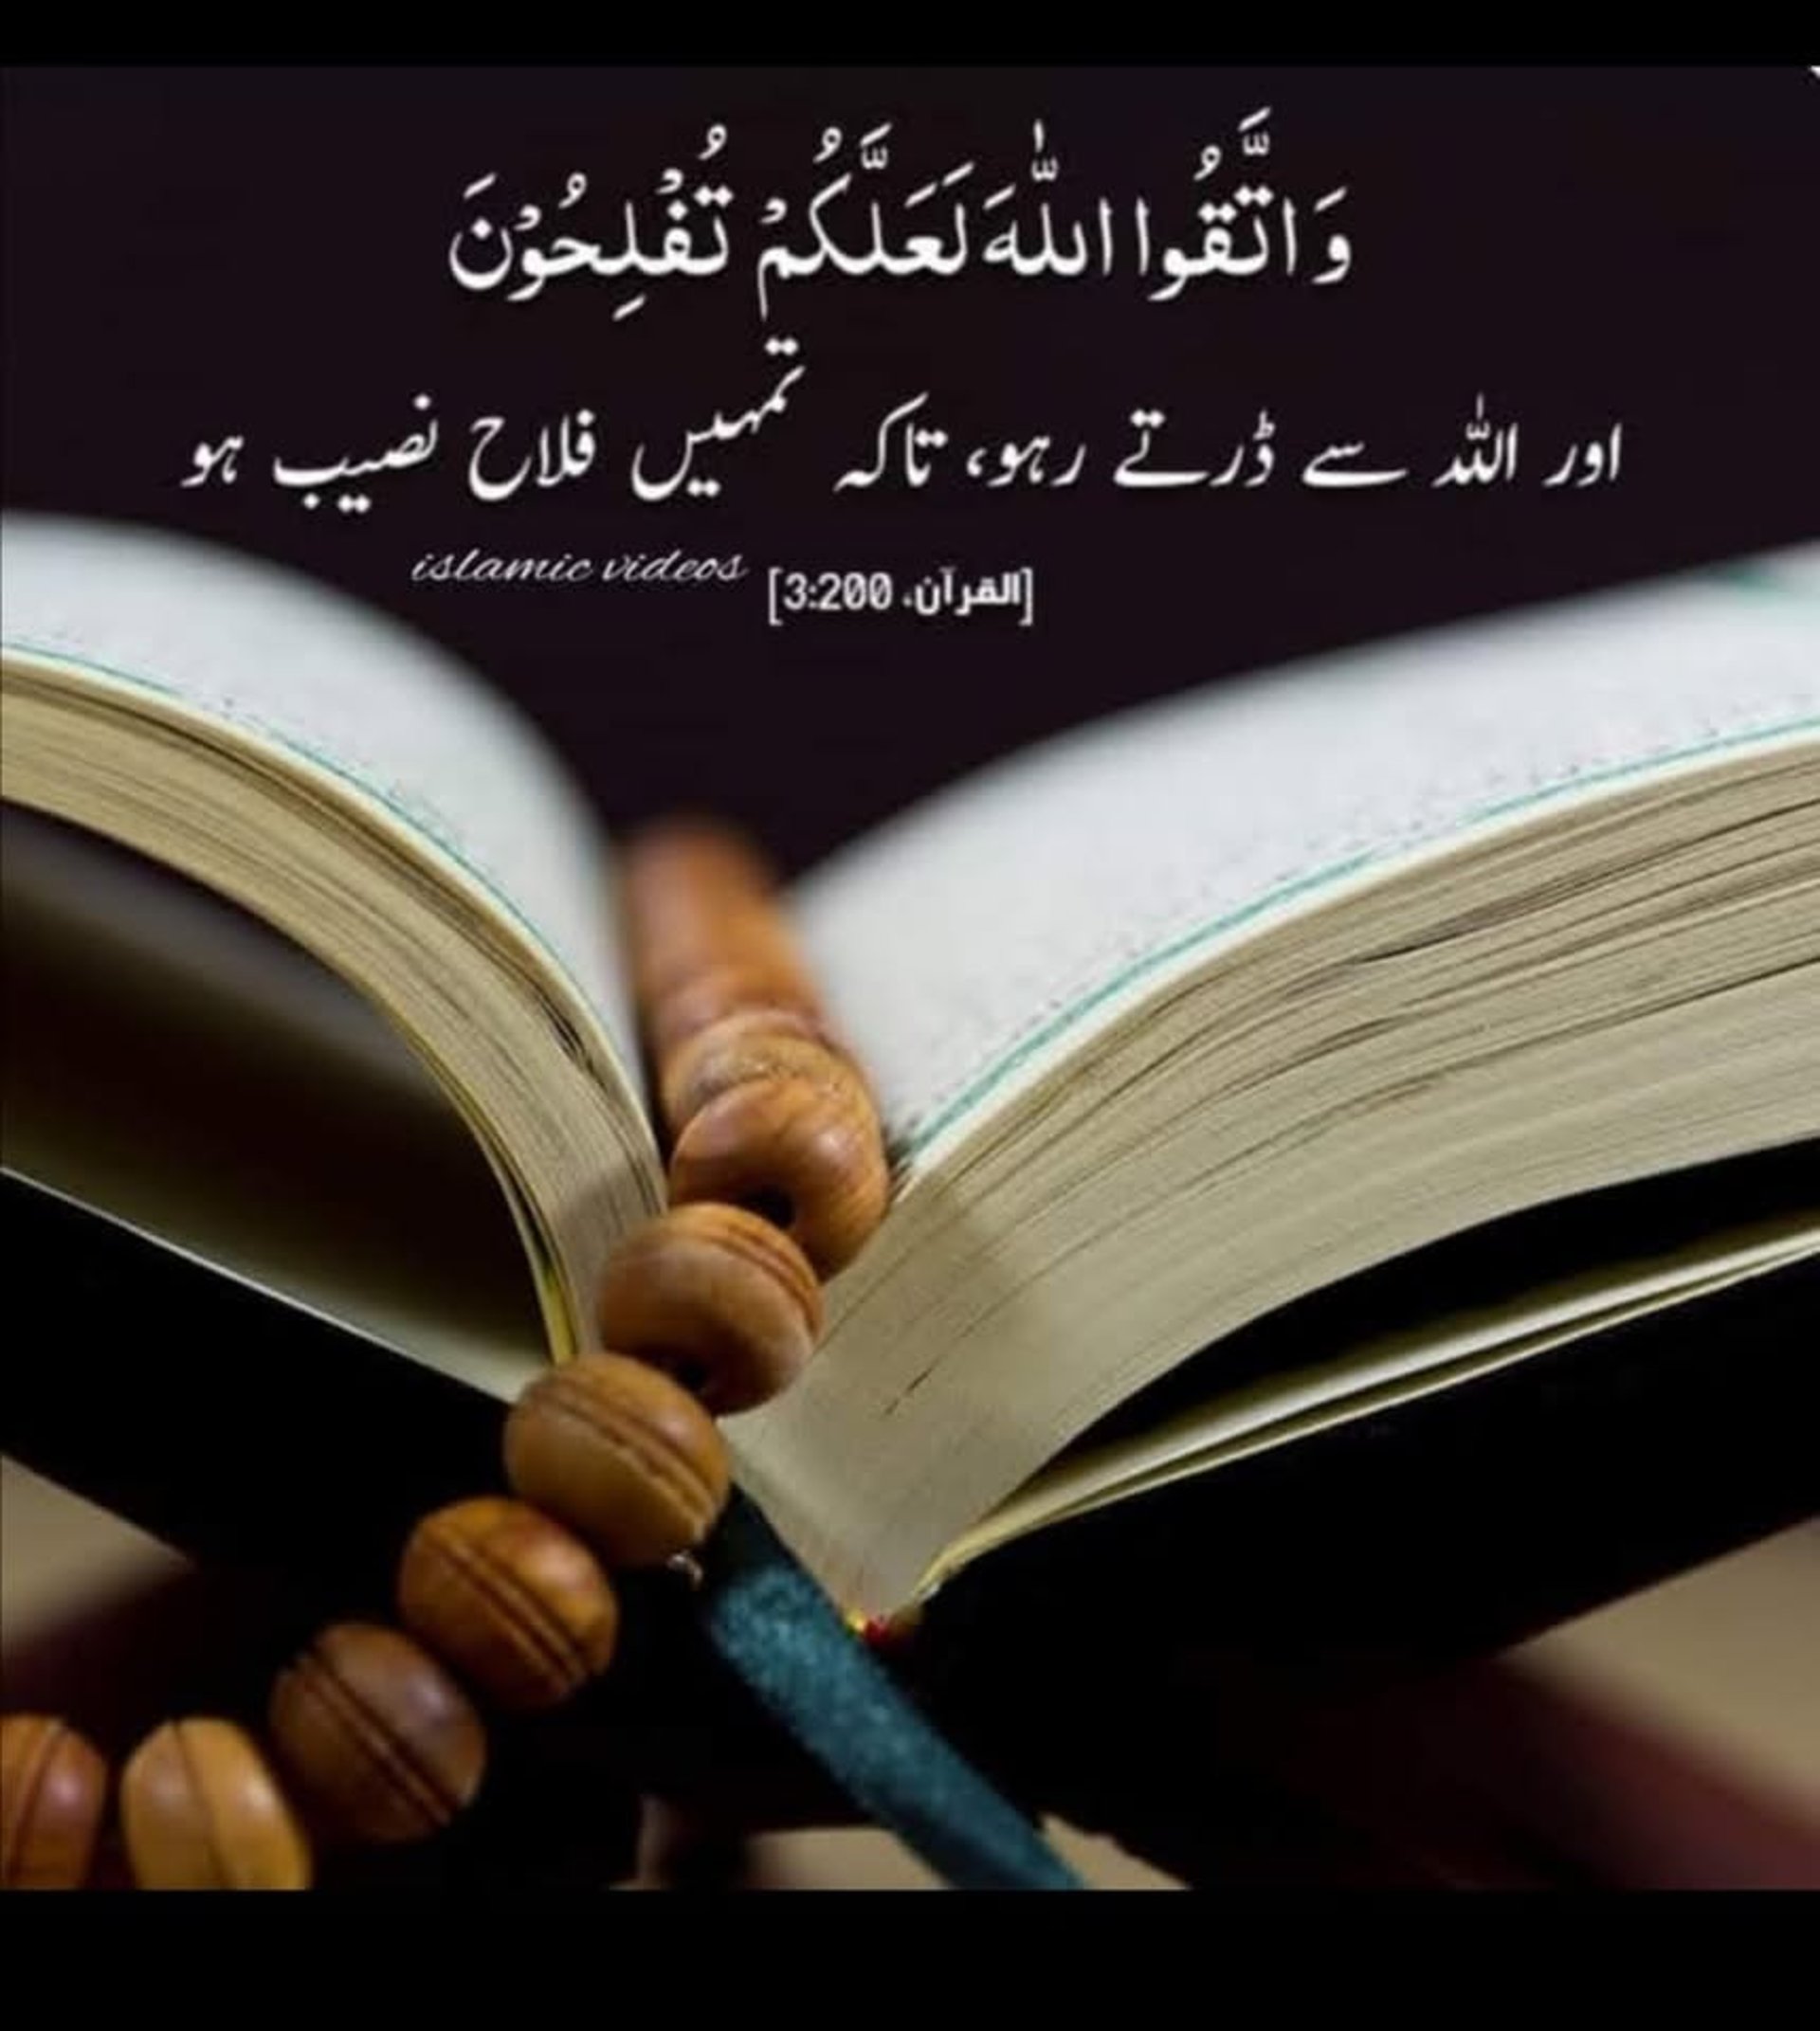 وَاتَّقُوا اللّٰهَ لَعَلَّكُمْ تُفْلِحُوْنَ
اور اللہ سے ڈرتے رہو، تاکہ تمہیں فلاح نصیب ہو
[القرآن، 3:200]
islamic videos